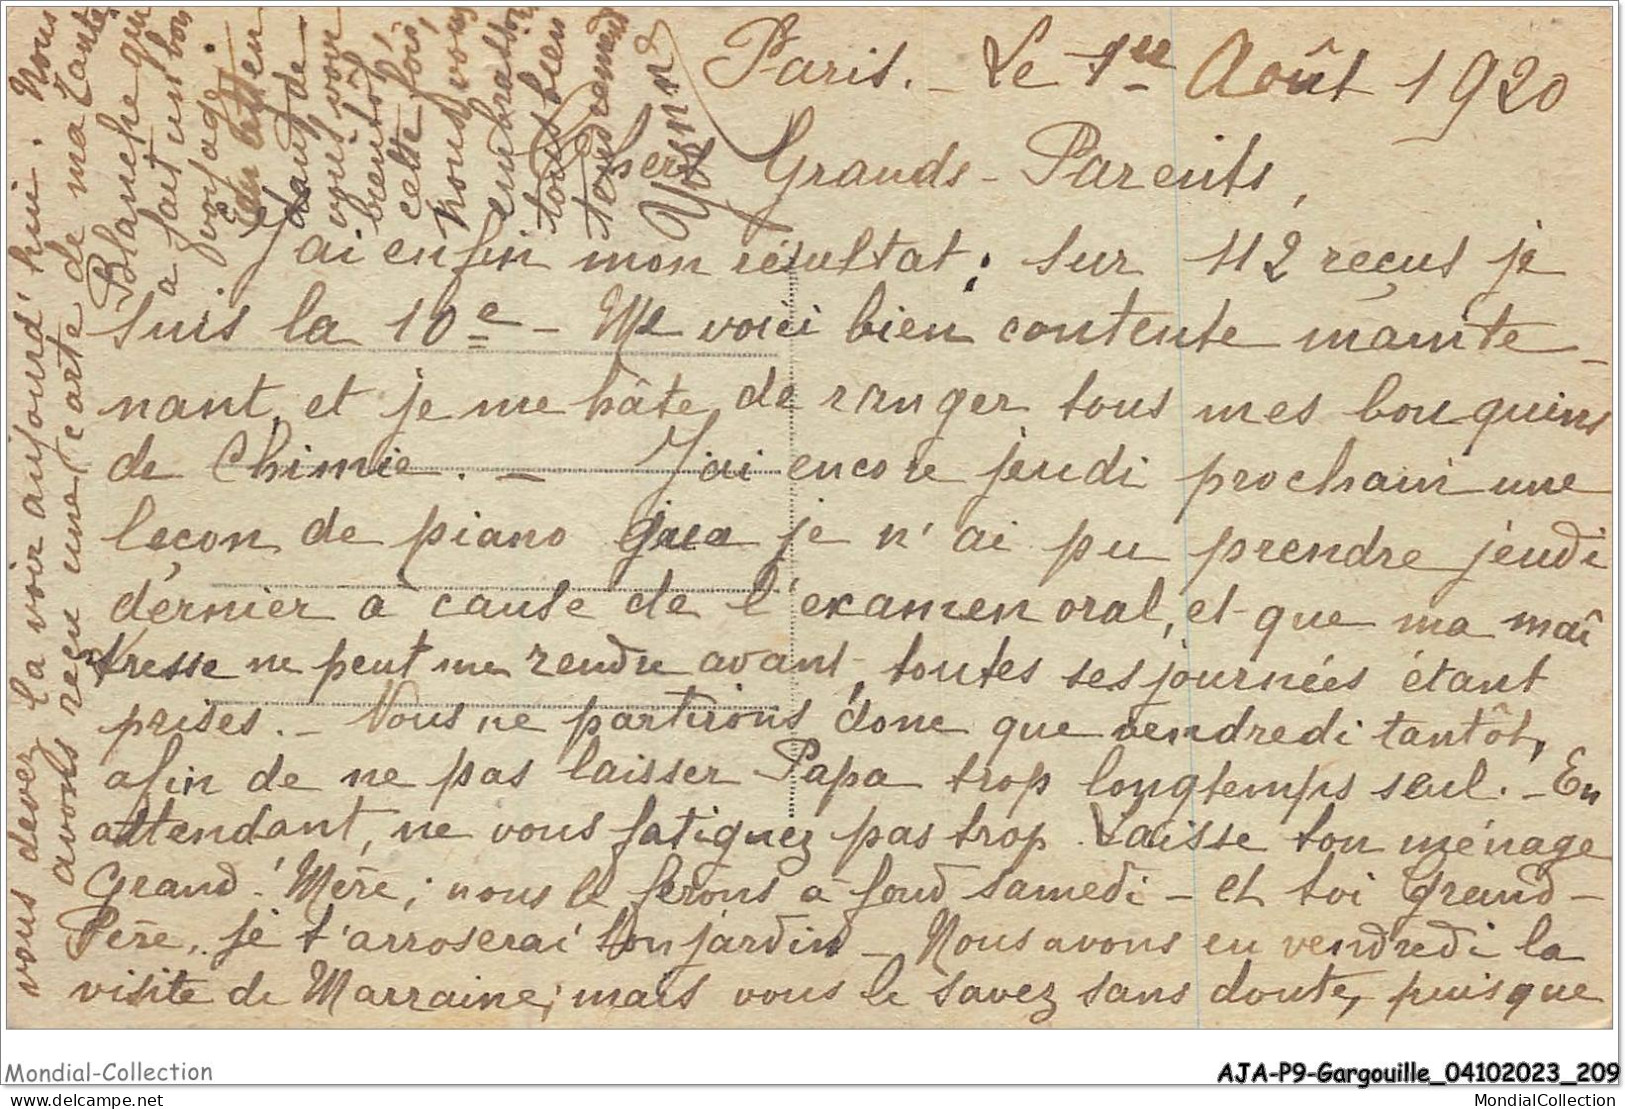 Paris. _ Le 1er Août 1920
Chers Grands-Parents,
J'ai enfin mon résultat; sur 112 reçus je
suis la 10e _ Me voici bien contente mainte-
nant, et je me hâte de ranger tous mes bouquins
de Chimie. _ J'ai encore jeudi prochain une
leçon de piano que je n'ai pu prendre jeudi
dernier à cause de l'examen oral, et que ma maî
tresse ne peut me rendre avant, toutes ses journées étant
prises. _ Nous ne partirons donc que vendredi tantôt,
afin de ne pas laisser Papa trop longtemps seul. _ En
attendant, ne vous fatiguez pas trop. Laisse ton ménage
Grand'Mère; nous le ferons à fond samedi _ et toi Grand-
Père, je t'arroserai ton jardin _ Nous avons eu vendredi la
visite de Marraine; mais vous le savez sans doute, puisque
vous devez la voir aujourd'hui. Nous
avons reçu une carte de ma tante
Blanche qui
a fait un bon
voyage.
En atten
dant de
vous voir
bientôt
cette fois,
nous vous
embrassons
tous bien
tendrement
Mondial-Collection
AJA-P9-Gargouille_04102023_209
delcampe.net
MondialCollection